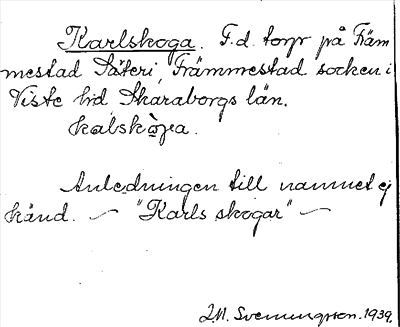 Karlskoga. F.d. torp på Främ
mestad Säteri, Främmestad socken i
Viste hd Skaraborgs län.
Anledningen till namnet ej
känd. — "Karls skogar" —
Svenungsson. 1939.